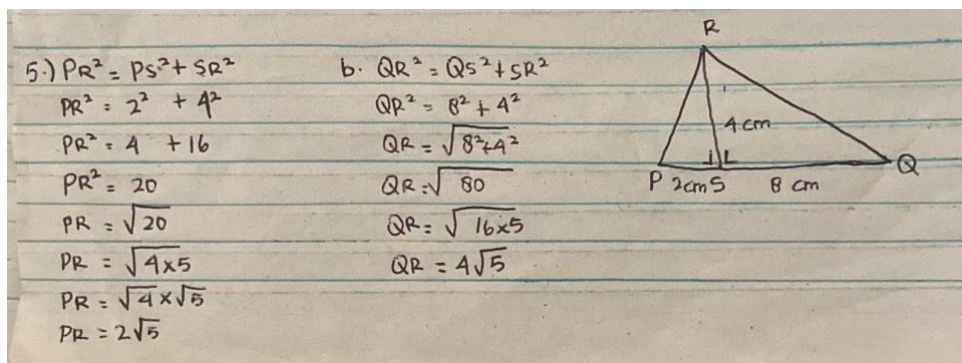 5.) PR² = PS² + SR²
PR² = 2² + 4²
PR² = 4 + 16
PR² = 20
PR = √20
PR = √4×5
PR = √4 × √5
PR = 2√5
b. QR² = QS² + SR²
QR² = 8² + 4²
QR = √8²+4²
QR = √80
QR = √16×5
QR = 4√5
R
4 cm
P 2cm S 8 cm Q